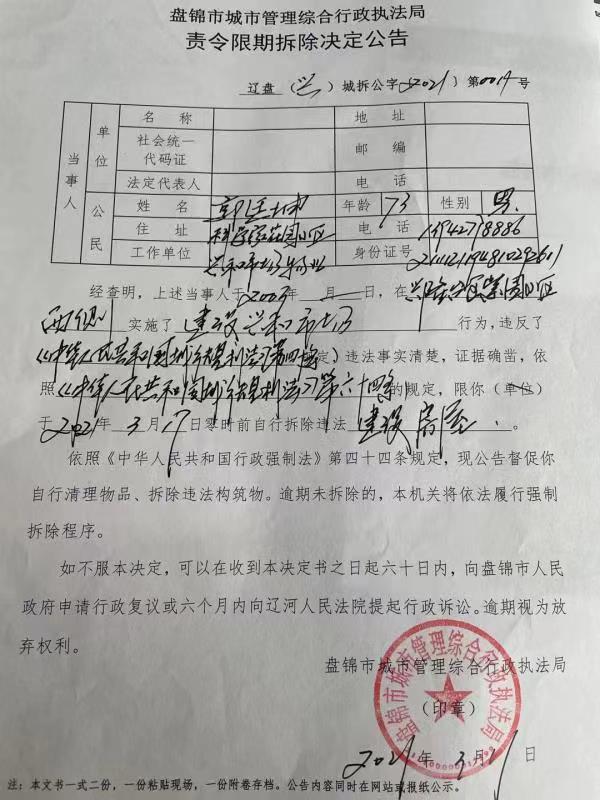 盘锦市城市管理综合行政执法局
责令限期拆除决定公告
辽盘（兴）城拆公字〔2021〕第0014号
当事人
单位
名 称
地 址
社会统一代码证
邮 编
法定代表人
电 话
公民
姓 名
年龄 73 性别 男
住 址
电 话
工作单位
身份证号
经查明，上述当事人于2003年 月 日，在
实施了 建设兴和市场 行为，违反了
《中华人民共和国城乡规划法》第四十条 定）违法事实清楚，证据确凿，依
照《中华人民共和国城乡规划法》第六十四条的规定，限你（单位）
于2021年3月17日零时前自行拆除违法 建设房屋 。
依照《中华人民共和国行政强制法》第四十四条规定，现公告督促你
自行清理物品、拆除违法构筑物。逾期未拆除的，本机关将依法履行强制
拆除程序。
如不服本决定，可以在收到本决定书之日起六十日内，向盘锦市人民
政府申请行政复议或六个月内向辽河人民法院提起行政诉讼。逾期视为放
弃权利。
盘锦市城市管理综合行政执法局
（印章）
盘锦市城市管理综合行政执法局
2021年3月 日
注：本文书一式二份，一份粘贴现场，一份附卷存档。公告内容同时在网站或报纸公示。